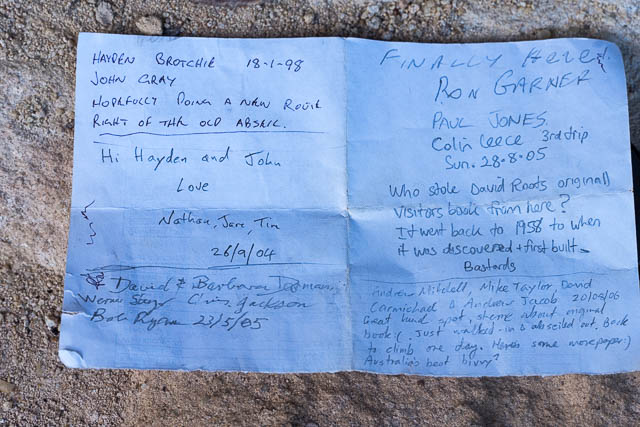 HAYDEN BROTCHIE 18-1-98
JOHN GRAY
HOPEFULLY DOING A NEW ROUTE
RIGHT OF THE OLD ABSEIL.
Hi Hayden and John
Love
Nathan, Jane, Tim
26/9/04
David & Barbara
Chris Jackson
Bob 23/5/05
FINALLY Here!
RON GARNER
PAUL JONES
Colin Leece 3rd trip
Sun. 28.8.05
Who stole David Roots original
visitors book from here?
It went back to 1958 to when
it was discovered + first built.
Bastards
Andrew Mitchell, Mike Taylor, David
Carmichael & Andrew Jacob 20/06/06
Great spot, shame about original
book :( Just walked in & abseiled out. Back
to climb one day. Here's some more paper;)
Australia's best bivvy?